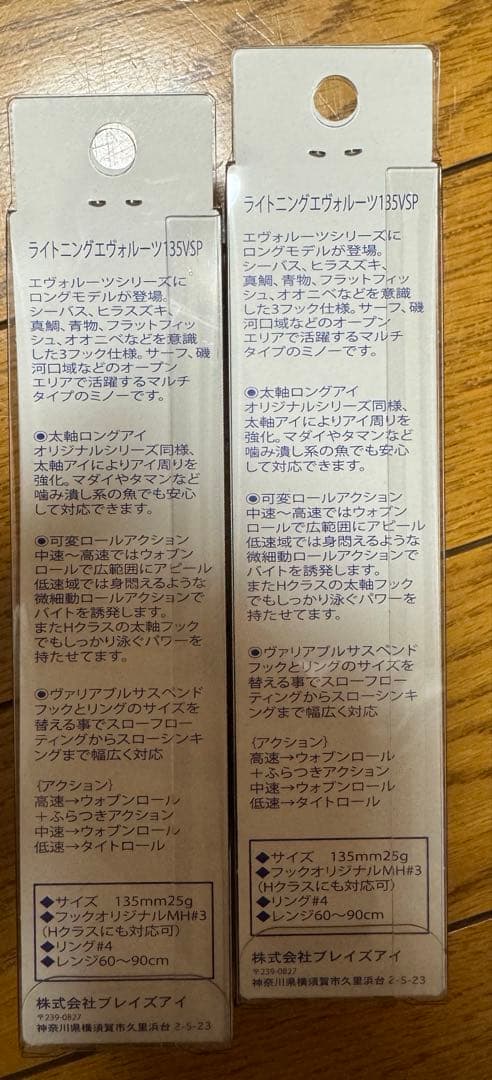 ライトニングエヴォルーツ135VSP
エヴォルーツシリーズに
ロングモデルが登場。
シーバス、ヒラスズキ、
真鯛、青物、フラットフィッ
シュ、オオニベなどを意識
した3フック仕様。サーフ、磯
河口域などのオープン
エリアで活躍するマルチ
タイプのミノーです。
◉太軸ロングアイ
オリジナルシリーズ同様、
太軸アイによりアイ周りを
強化。マダイやタマンなど
噛み潰し系の魚でも安心
して対応できます。
◉可変ロールアクション
中速〜高速ではウォブン
ロールで広範囲にアピール
低速域では身悶えるような
微細動ロールアクションで
バイトを誘発します。
またHクラスの太軸フック
でもしっかり泳ぐパワーを
持たせてます。
◉ヴァリアブルサスペンド
フックとリングのサイズを
替える事でスローフロー
ティングからスローシンキ
ングまで幅広く対応
{アクション}
高速→ウォブンロール
＋ふらつきアクション
中速→ウォブンロール
低速→タイトロール
◆サイズ 135mm25g
◆フックオリジナルMH#3
(Hクラスにも対応可)
◆リング#4
◆レンジ60〜90cm
株式会社ブレイズアイ
〒239-0827
神奈川県横須賀市久里浜台 2-5-23
ライトニングエヴォルーツ135VSP
エヴォルーツシリーズに
ロングモデルが登場。
シーバス、ヒラスズキ、
真鯛、青物、フラットフィッ
シュ、オオニベなどを意識
した3フック仕様。サーフ、磯
河口域などのオープン
エリアで活躍するマルチ
タイプのミノーです。
◉太軸ロングアイ
オリジナルシリーズ同様、
太軸アイによりアイ周りを
強化。マダイやタマンなど
噛み潰し系の魚でも安心
して対応できます。
◉可変ロールアクション
中速〜高速ではウォブン
ロールで広範囲にアピール
低速域では身悶えるような
微細動ロールアクションで
バイトを誘発します。
またHクラスの太軸フック
でもしっかり泳ぐパワーを
持たせてます。
◉ヴァリアブルサスペンド
フックとリングのサイズを
替える事でスローフロー
ティングからスローシンキ
ングまで幅広く対応
{アクション}
高速→ウォブンロール
＋ふらつきアクション
中速→ウォブンロール
低速→タイトロール
◆サイズ 135mm25g
◆フックオリジナルMH#3
(Hクラスにも対応可)
◆リング#4
◆レンジ60〜90cm
株式会社ブレイズアイ
〒239-0827
神奈川県横須賀市久里浜台 2-5-23